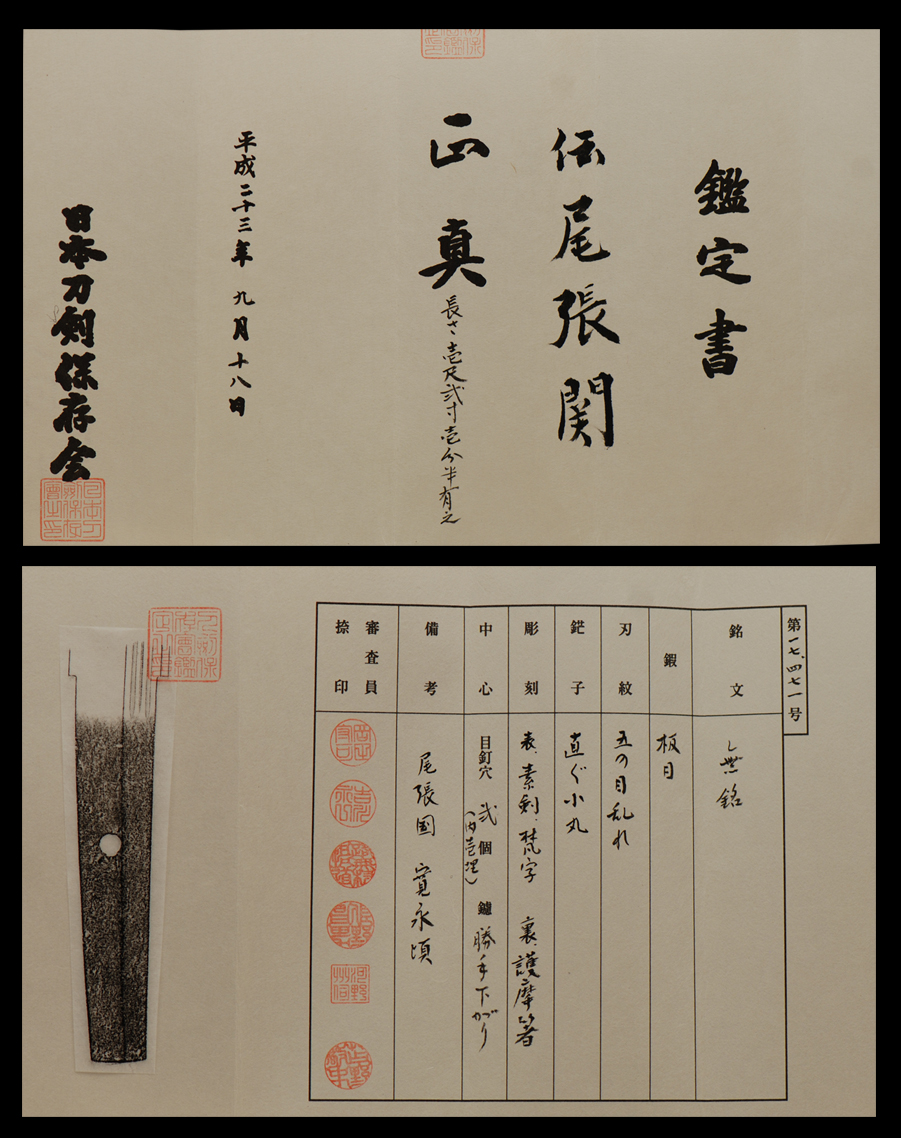 鑑定書
伝尾張関
正真
長さ壱尺弐寸壱分半有之
平成二十三年九月十八日
日本刀剣保存会
第一七、四七一号
銘文
無銘
鍛
板目
刃紋
五の目乱れ
鋩子
直ぐ小丸
彫刻
表、素剣、梵字 裏、護摩箸
中心
目釘穴 弐個 鑢 勝手下がり
(内壱埋)
備考
尾張国 寛永頃
審査員
捺印